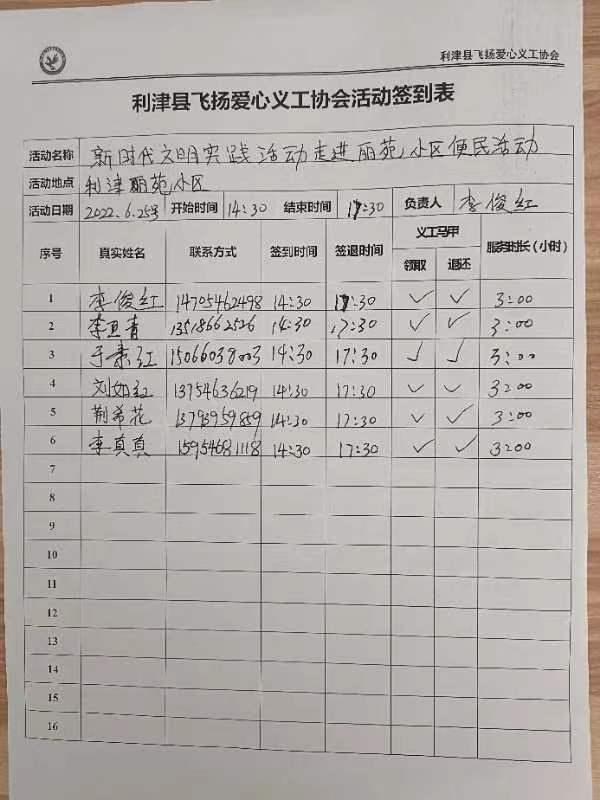 利津县飞扬爱心义工协会
利津县飞扬爱心义工协会活动签到表
活动名称 新时代文明实践活动走进丽苑小区便民活动
活动地点 利津丽苑小区
活动日期 2022.6.25号 开始时间 14:30 结束时间 17:30 负责人 李俊红
序号 真实姓名 联系方式 签到时间 签退时间 义工马甲 服务时长(小时)
领取 退还
1 李俊红 14705462498 14:30 17:30 ✓ ✓ 3:00
2 李卫青 13518662526 14:30 17:30 ✓ ✓ 3:00
3 于素红 15066038003 14:30 17:30 ✓ ✓ 3:00
4 刘如红 13754636219 14:30 17:30 ✓ ✓ 3:00
5 荆希花 13793959859 14:30 17:30 ✓ ✓ 3:00
6 李真真 15954681118 14:30 17:30 ✓ ✓ 3:00
7
8
9
10
11
12
13
14
15
16